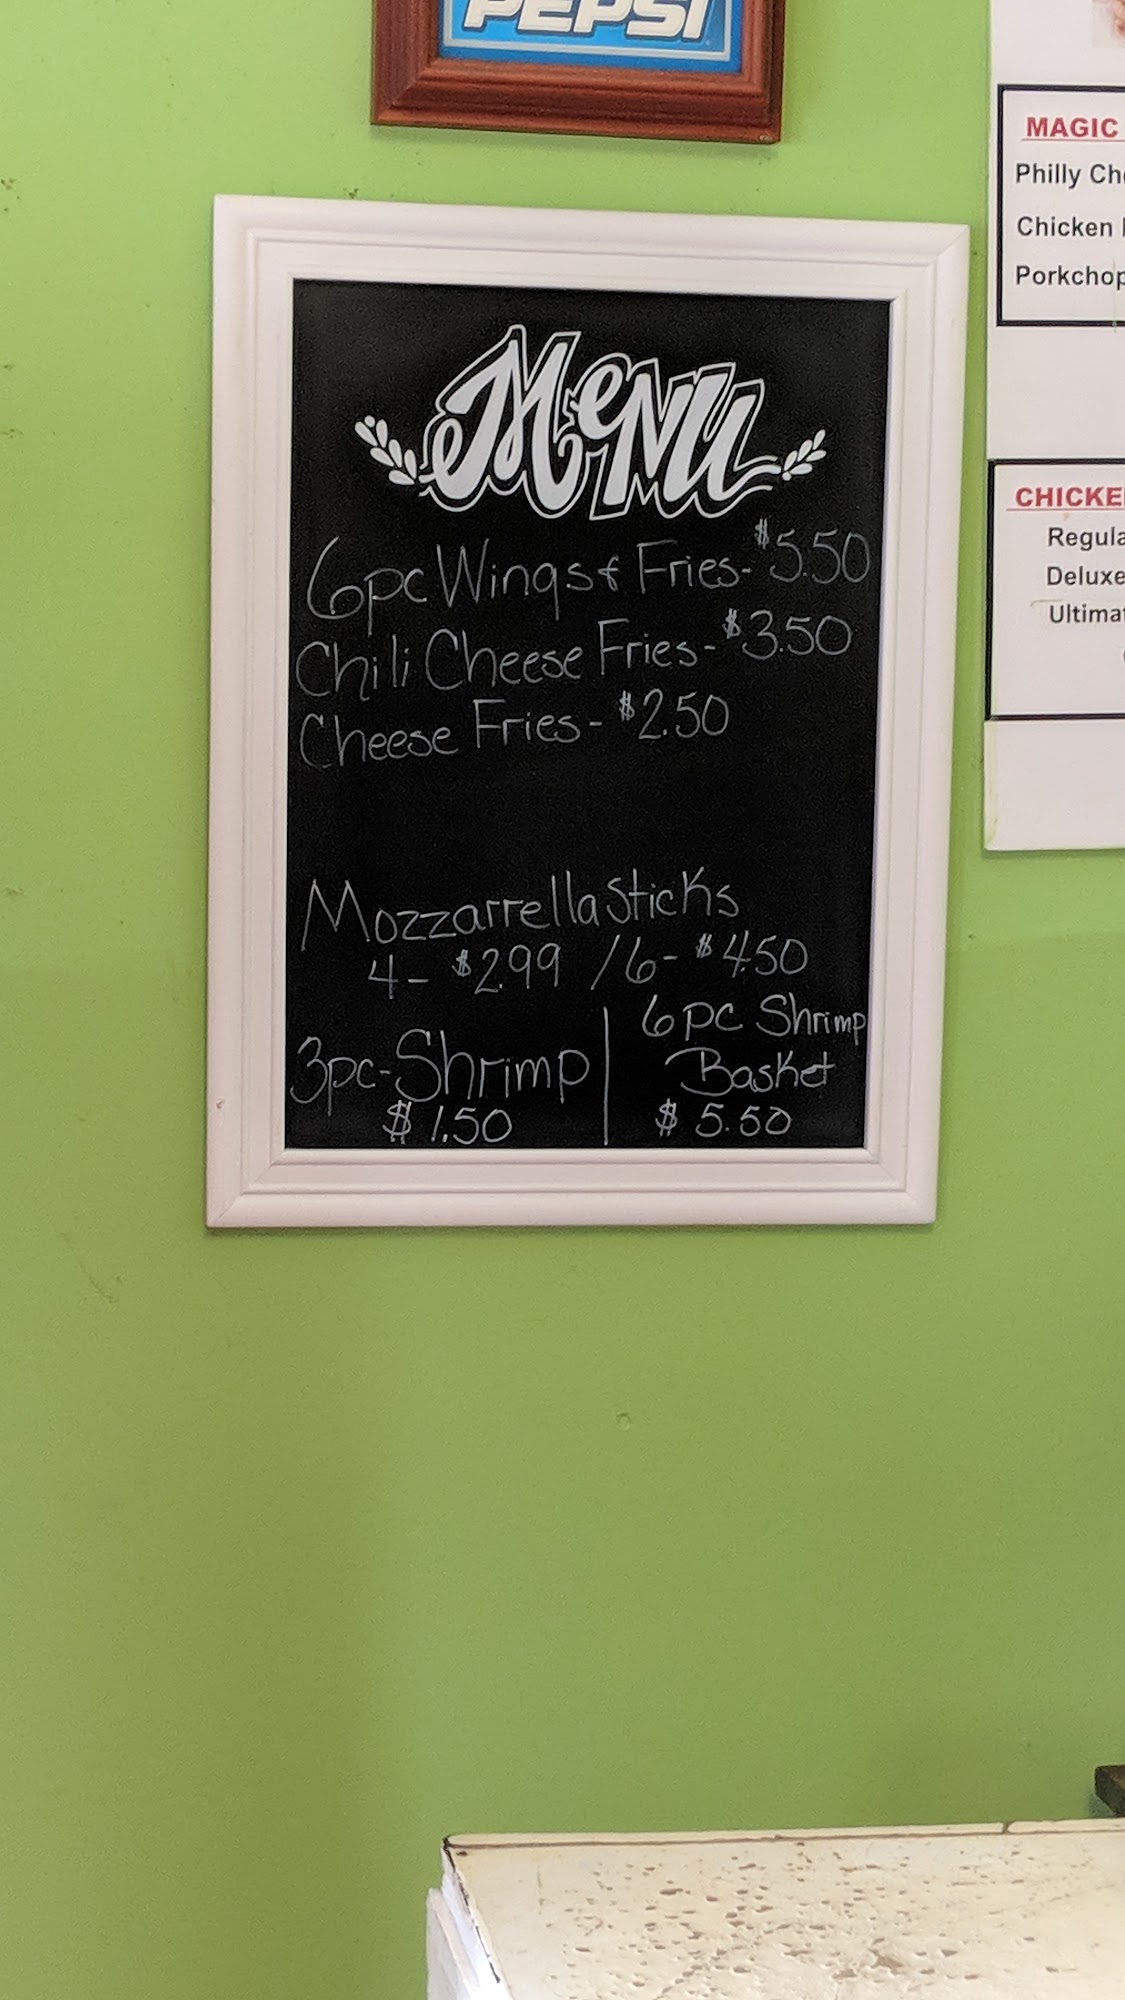 PEPSI
Menu
6pc Wings & Fries - $5.50
Chili Cheese Fries - $3.50
Cheese Fries - $2.50
Mozzarrella Sticks
4 - $2.99 / 6 - $4.50
3pc - Shrimp
$1.50
6pc Shrimp
Basket
$5.50
MAGIC
Philly
Chicken
Regular
Deluxe